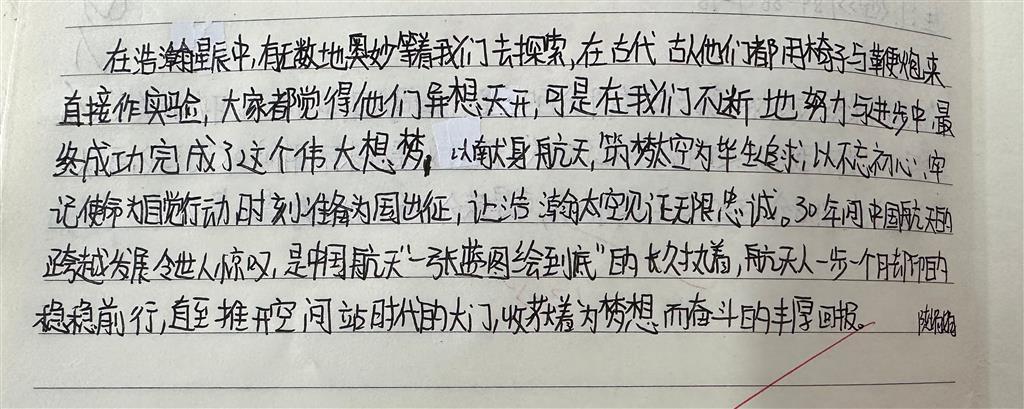 在浩瀚星辰中,有无数地奥妙等着我们去探索,在古代 古人他们都用椅子与鞭炮来
直接作实验,大家都觉得他们异想天开,可是在我们不断地努力与进步中最
终成功完成了这个伟大想梦,以献身航天,筑梦太空为毕生追求,以不忘初心、牢
记使命为自觉行动时刻准备为国出征,让浩瀚太空见证无限忠诚。30年间中国航天的
跨越发展令世人惊叹,是中国航天“一张蓝图绘到底”的长久执着,航天人一步一个脚印的
稳稳前行,直至推开空间站时代的大门,收获着为梦想而奋斗的丰厚回报。